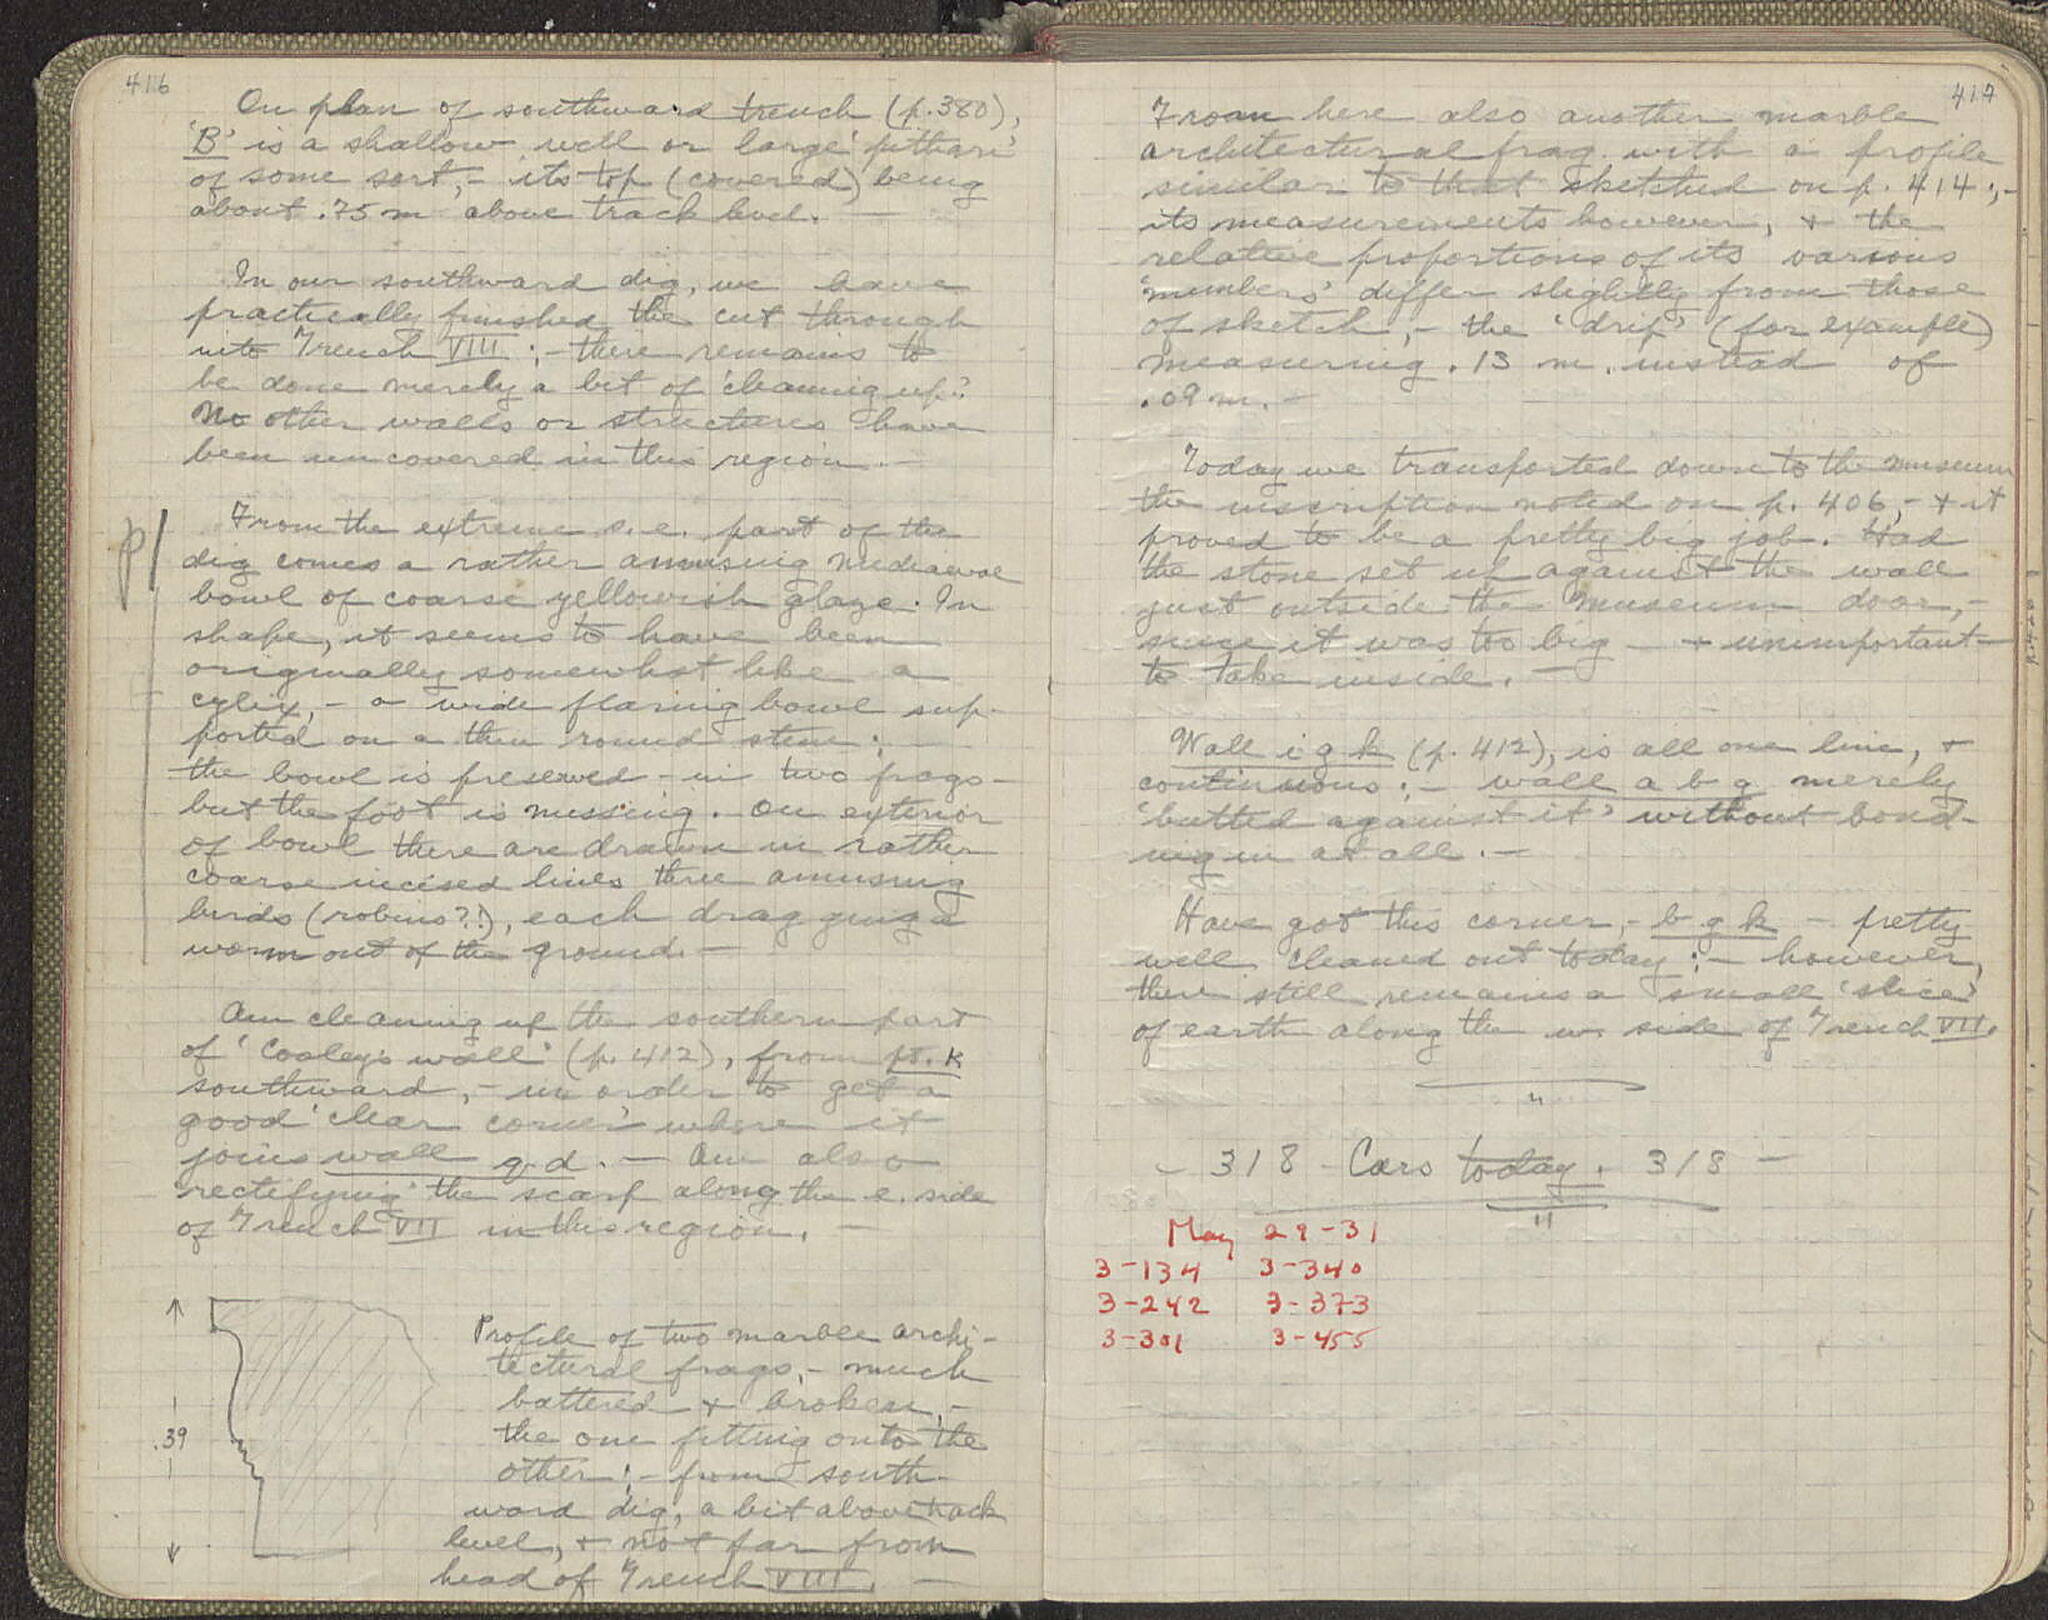 416
On plan of southward trench (p.380),
'B' is a shallow well or large 'pithari'
of some sort, - its top (covered) being
about .75 m above track level. —
In our southward dig, we have
practically finished the cut through
into Trench VIII ; - there remains to
be done merely a bit of 'cleaning up'.
No other walls or structures have
been uncovered in this region. —
p/
From the extreme s.e. part of the
dig comes a rather amusing mediaeval
bowl of coarse yellowish glaze. In
shape, it seems to have been
originally somewhat like a
cylix, - a wide flaring bowl sup-
ported on a thin round stem ;
the bowl is preserved - in two frags -
but the foot is missing. On exterior
of bowl there are drawn in rather
coarse incised lines three amusing
birds (robins?!), each dragging a
worm out of the ground. —
Am cleaning up the southern part
of 'Cooley's wall' (p. 412), from pt. k
southward, - in order to get a
good 'clear corner' where it
joins wall g d. — Am also
'rectifying' the scarp along the e. side
of Trench VII in this region. —
.39
Profile of two marble archi-
tectural frags, - much
battered + broken, -
the one fitting onto the
other ; - from south-
ward dig, a bit above track
level, + not far from
head of Trench VIII. —
417
From here also another marble
architectural frag. with a profile
similar to that sketched on p. 414 ; -
its measurements however, + the
relative proportions of its various
'members' differ slightly from those
of sketch, - the 'drip' (for example)
measuring .13 m. instead of
.09 m. —
Today we transported down to the museum
the inscription noted on p. 406, - + it
proved to be a pretty big job. Had
the stone set up against the wall
just outside the museum door, -
since it was too big - + unimportant -
to take inside. —
Wall i g k (p. 412), is all one line, +
continuous ; - wall a b g merely
'butted against it' without bond-
ing in at all. —
Have got this corner, - b g k - pretty
well cleaned out today ; - however,
there still remains a small 'slice'
of earth along the w. side of Trench VII.
- 318 - Cars today. 318 —
May 29-31
3-134 3-340
3-242 3-373
3-301 3-455